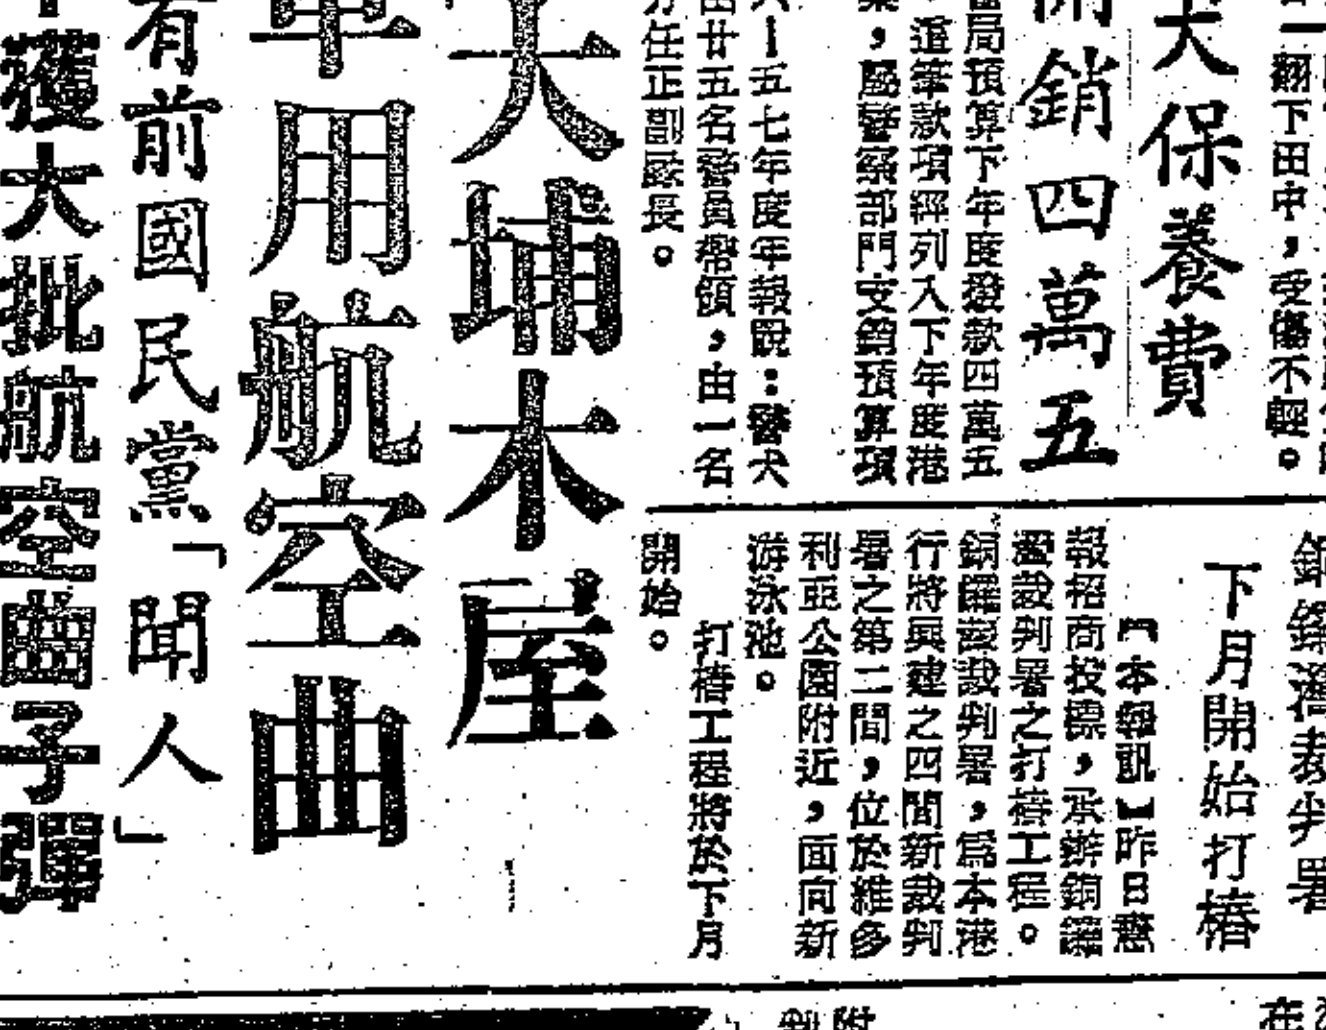 一翻下田中，受傷不輕。
犬保養費
開銷四萬五
當局預算下年度撥款四萬五
，這筆款項經列入下年度港
，屬警察部門支銷預算項
六—五七年度年報說：警犬
由廿五名警員帶領，由一名
任正副隊長。
銅鑼灣裁判署
下月開始打樁
【本報訊】昨日憲
報招商投標，承辦銅鑼
灣裁判署之打樁工程。
銅鑼灣裁判署，爲本港
行將興建之四間新裁判
署之第二間，位於維多
利亞公園附近，面向新
游泳池。
打樁工程將於下月
開始。
大埔木屋
軍用航空曲
有前國民黨「聞人」
獲大批航空曲子彈